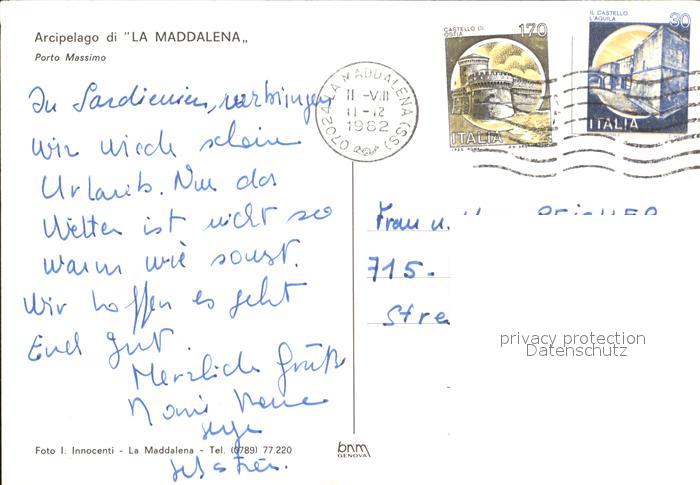 Arcipelago di "LA MADDALENA„
Porto Massimo
CASTELLO DI OSTIA
170
ITALIA
IL CASTELLO L'AQUILA
30
ITALIA
07024 LA MADDALENA (SS)
11 -VIII
11-12
1982
In Sardienien, verbringen
wir wiede schöin
Urlaub. Nur das
Wetter ist nicht so
warm wie sonst.
Wir hoffen es geht
Euch gut.
Herzliche Grüße
Frau u.
715.
Stre
privacy protection
Datenschutz
Foto I. Innocenti - La Maddalena - Tel. (0789) 77.220
bnm
GENOVA
Sebastian.